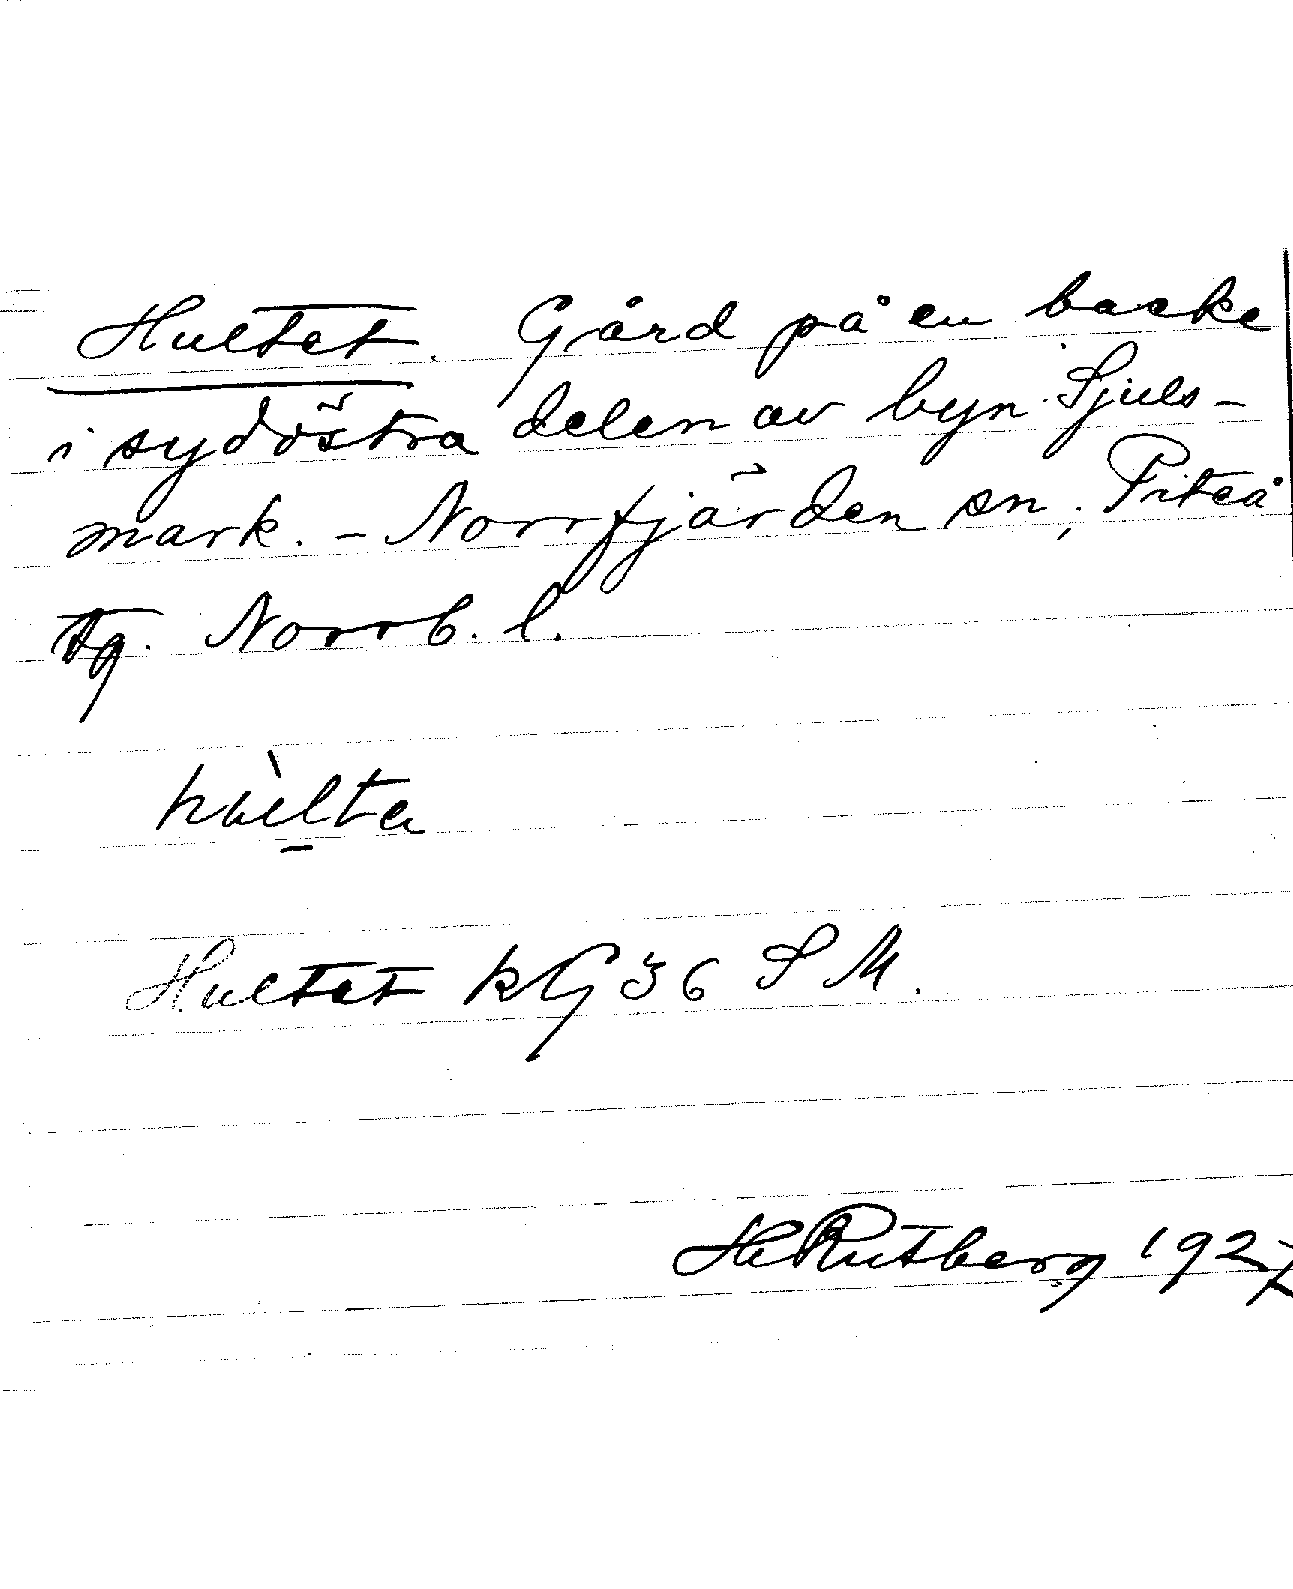 Hultet. Gård på en backe
i sydöstra delen av byn Sjuls-
mark. - Norrfjärden sn, Piteå
tg. Norrb. l.
Hultet kG 36 S M.
H Rutberg 1927